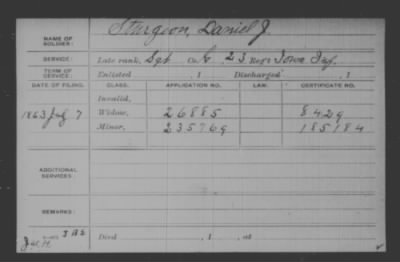 NAME OF SOLDIER: Sturgeon, Daniel J.
SERVICE: Late rank, Sgt Co. G, 23 Reg't Iowa Inf.
TERM OF SERVICE: Enlisted , 1 Discharged , 1
DATE OF FILING. CLASS. APPLICATION NO. LAW. CERTIFICATE NO.
Invalid,
1863 July 7 Widow, 26885 8429
Minor, 235769 185184
ADDITIONAL SERVICES:
REMARKS:
Died , 1 , at